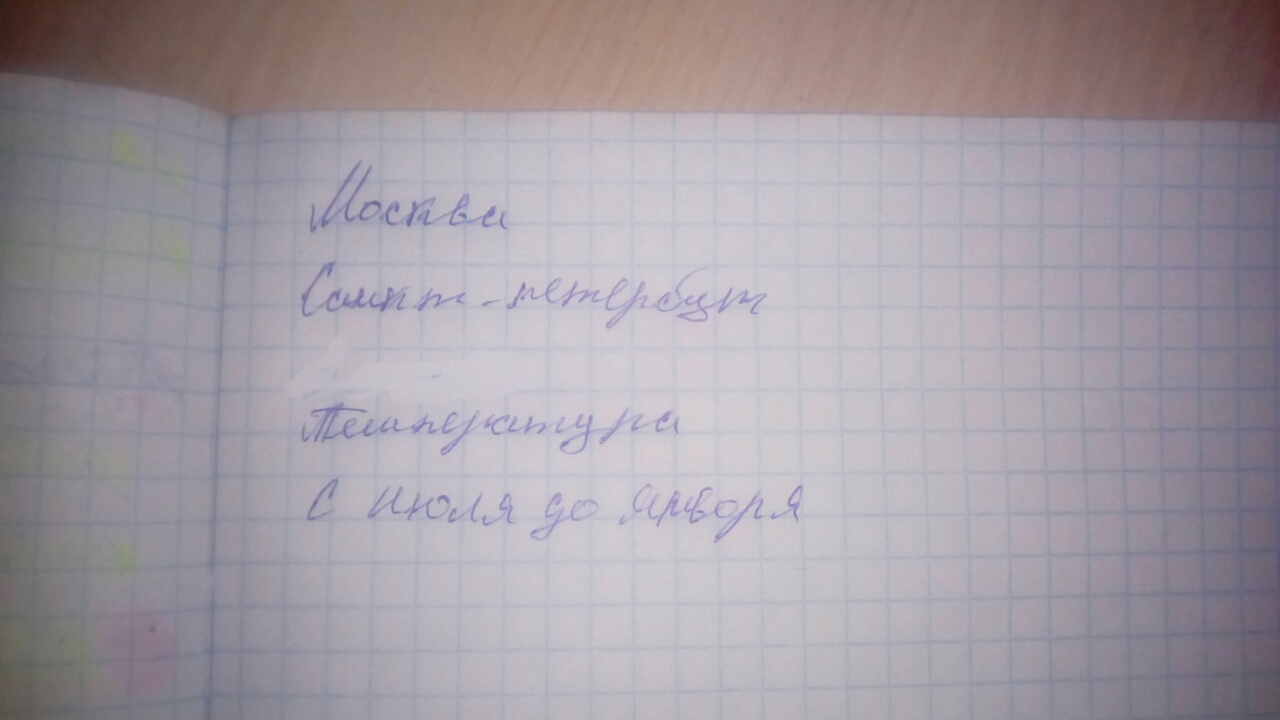 Москва
Санкт-петербург
Температура
С июля до января